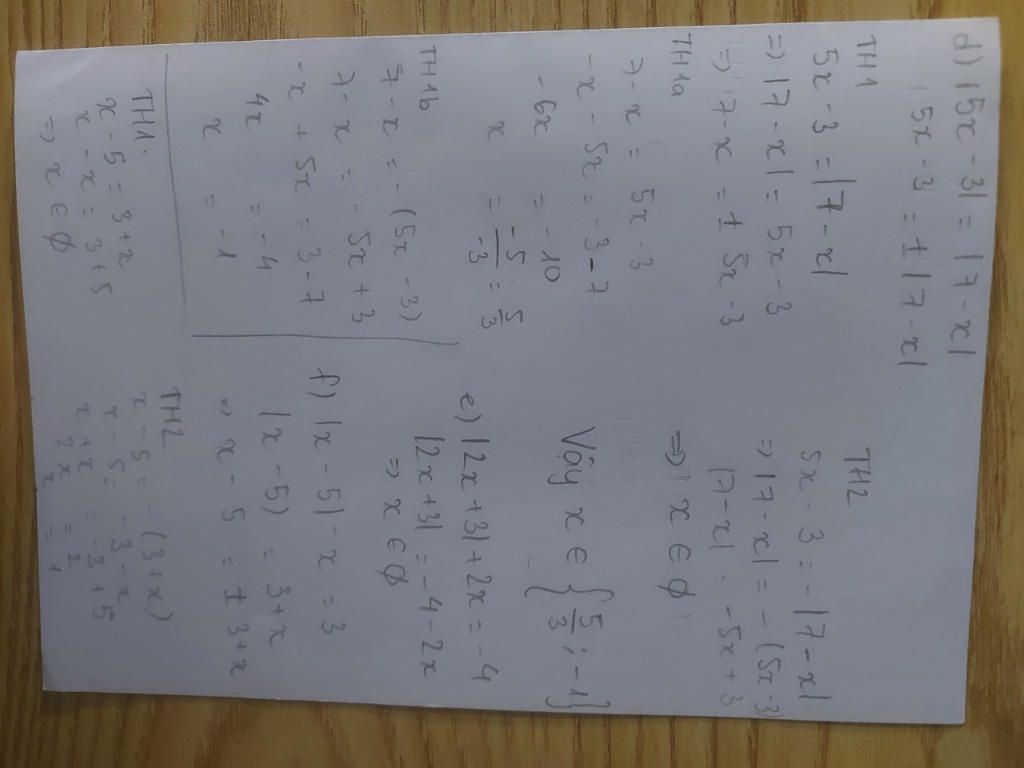 d) |5x - 3| = |7 - x|
5x - 3 = ± |7 - x|
TH1
5x - 3 = |7 - x|
=> |7 - x| = 5x - 3
=> 7 - x = ± 5x - 3
TH1a
7 - x = 5x - 3
-x - 5x = -3 - 7
-6x = -10
x = -5/-3 = 5/3
TH1b
7 - x = - (5x - 3)
7 - x = - 5x + 3
-x + 5x = 3 - 7
4x = -4
x = -1
TH2
5x - 3 = - |7 - x|
=> |7 - x| = - (5x - 3)
|7 - x| = -5x + 3
=> x ∈ ∅
Vậy x ∈ {5/3; -1}
e) |2x + 3| + 2x = -4
|2x + 3| = -4 - 2x
=> x ∈ ∅
f) |x - 5| - x = 3
|x - 5) = 3 + x
=> x - 5 = ± 3 + x
TH1:
x - 5 = 3 + x
x - x = 3 + 5
=> x ∈ ∅
TH2
x - 5 = - (3 + x)
x - 5 = -3 - x
x + x = -3 + 5
2x = 2
x = 1